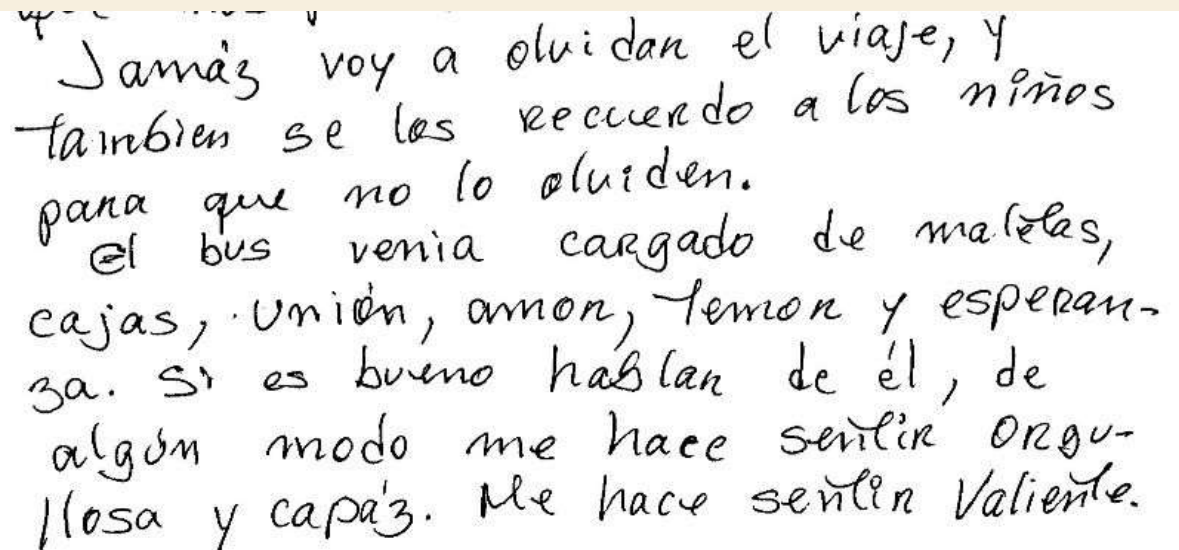 Jamáz voy a olvidar el viaje, y
tambien se los recuerdo a los niños
para que no lo olviden.
El bus venia cargado de maletas,
cajas, unión, amor, temor y esperan-
za. Si es bueno hablar de él, de
algún modo me hace sentir orgu-
llosa y capáz. Me hace sentir Valiente.